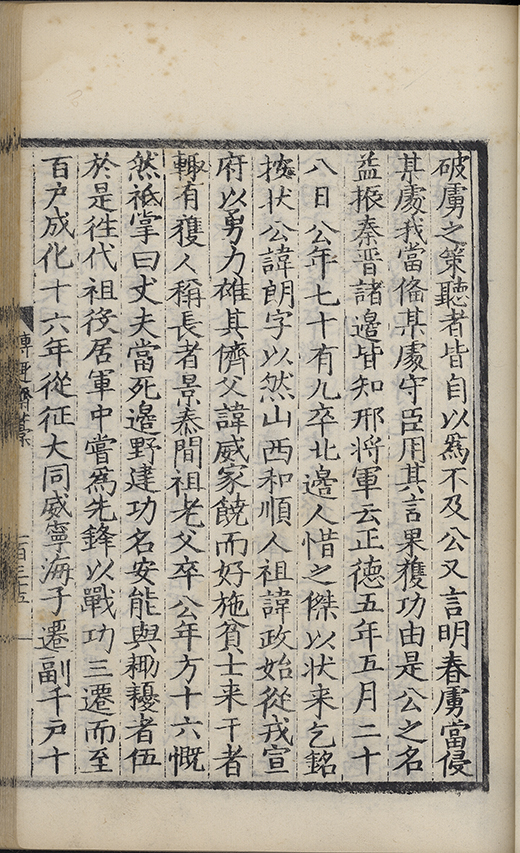 破虜之策聽者皆自以為不及公又言明春虜當侵
某處我當備某處守臣用其言果獲功由是公之名
益振秦晉諸邊皆知邢将軍云正德五年五月二十
八日公年七十有九卒北邊人惜之傑以状来乞銘
按状公諱朗字以然山西和順人祖諱政始從戎宣
府以勇力雄其儕父諱威家饒而好施貧士来干者
輙有獲人稱長者景泰間祖老父卒公年方十六慨
然祗掌曰丈夫當死邉野建功名安能與耡耰者伍
於是徃代祖役居軍中嘗為先鋒以戰功三遷而至
百户成化十六年從征大同威寧海子遷副千户十